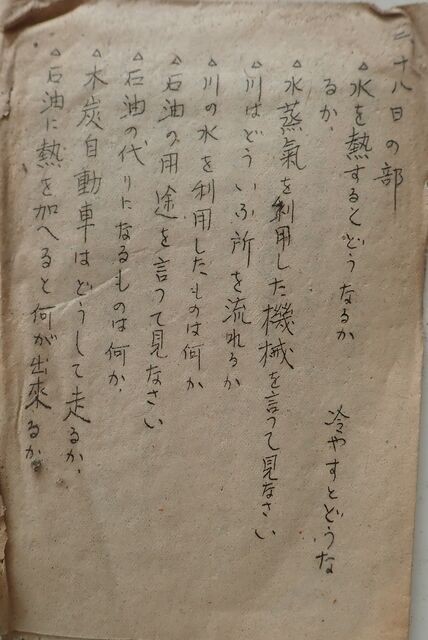 二十八日の部
△水を熱するとどうなるか　冷やすとどうな
るか、
△水蒸氣を利用した機械を言つて見なさい
△川はどういふ所を流れるか
△川の水を利用したものは何か
△石油の用途を言つて見なさい
△石油の代りになるものは何か、
△木炭自動車はどうして走るか、
△石油に熱を加へると何が出來るか。